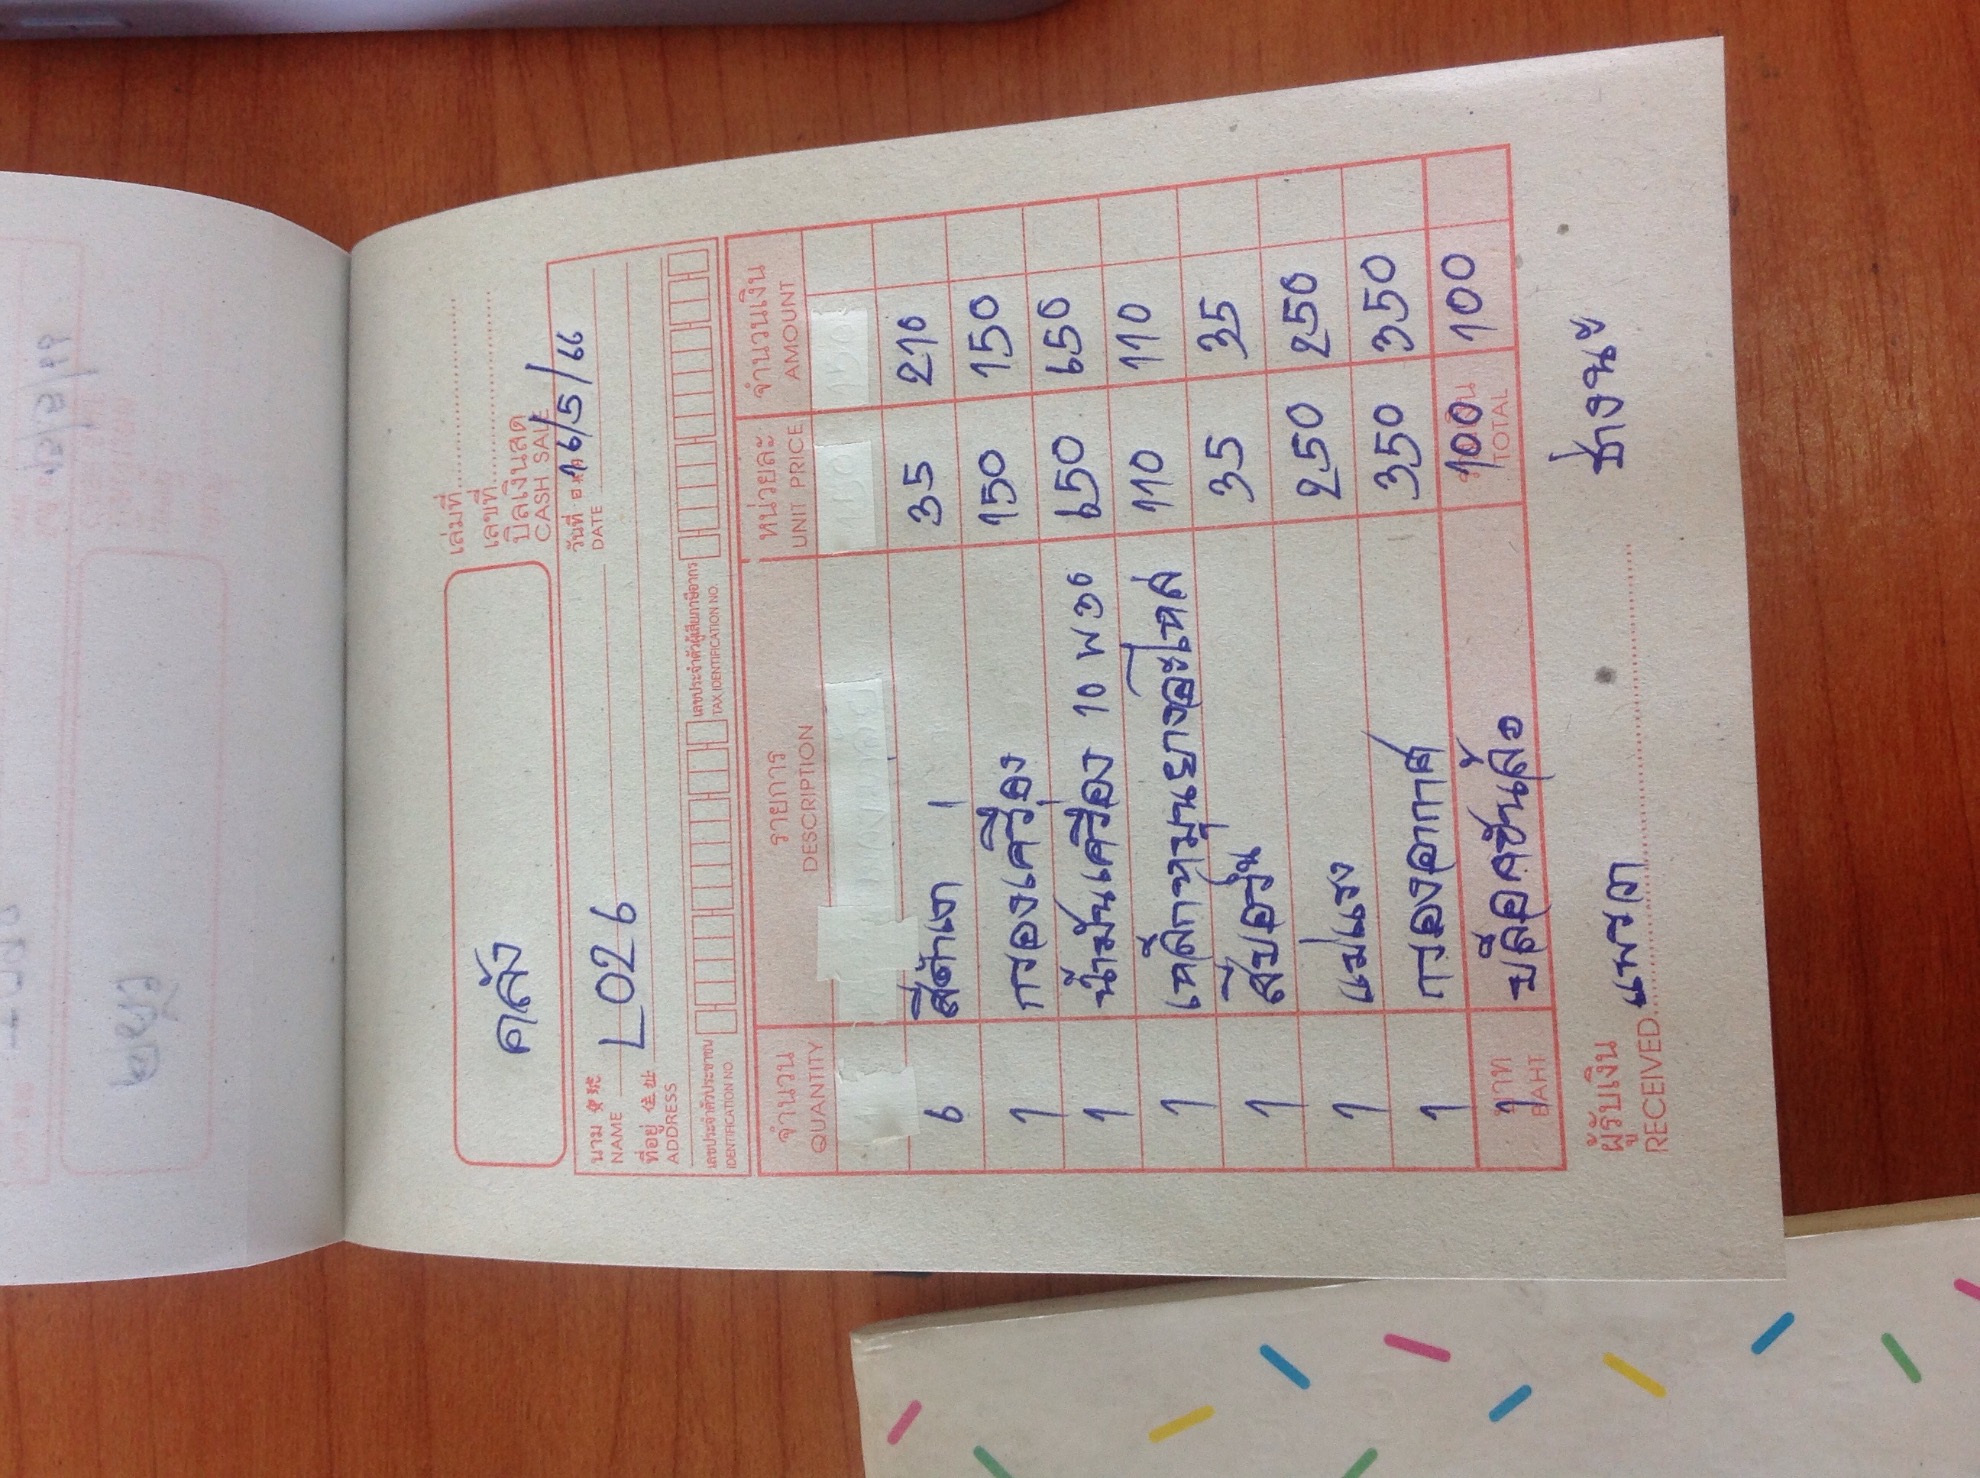 คลัง
เล่มที่
เลขที่
บิลเงินสด
CASH SALE
วันที่ 16/5/66
DATE
นาม L026
NAME
ที่อยู่ 住址
ADDRESS
เลขประจำตัวประชาชน
IDENTIFICATION NO.
เลขประจำตัวผู้เสียภาษีอากร
TAX IDENTIFICATION NO.
จำนวน รายการ หน่วยละ จำนวนเงิน
QUANTITY DESCRIPTION UNIT PRICE AMOUNT
6 สีดำเงา 35 210
1 กรองเครื่อง 150 150
1 น้ำมันเครื่อง 10 W 30 650 650
1 110 110
1 35 35
1 แม่แรง 250 250
1 กรองอากาศ 350 350
1 บล็อคขันล้อ 100 100
บาท
BAHT
TOTAL
ผู้รับเงิน แพรวา
RECEIVED